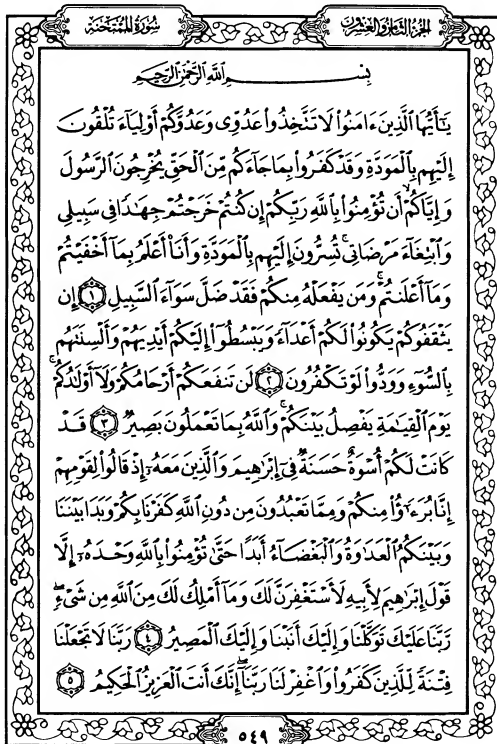 سُورَةُ المُمْتَحَنَةِ
الجُزْءُ الثَّامِنُ وَالعِشْرُونَ
بِسْمِ اللَّهِ الرَّحْمَٰنِ الرَّحِيمِ
يَٰٓأَيُّهَا ٱلَّذِينَ ءَامَنُوا۟ لَا تَتَّخِذُوا۟ عَدُوِّى وَعَدُوَّكُمْ أَوْلِيَآءَ تُلْقُونَ
إِلَيْهِم بِٱلْمَوَدَّةِ وَقَدْ كَفَرُوا۟ بِمَا جَآءَكُم مِّنَ ٱلْحَقِّ يُخْرِجُونَ ٱلرَّسُولَ
وَإِيَّاكُمْ ۙ أَن تُؤْمِنُوا۟ بِٱللَّهِ رَبِّكُمْ إِن كُنتُمْ خَرَجْتُمْ جِهَٰدًا فِى سَبِيلِى
وَٱبْتِغَآءَ مَرْضَاتِى ۚ تُسِرُّونَ إِلَيْهِم بِٱلْمَوَدَّةِ وَأَنَا۠ أَعْلَمُ بِمَآ أَخْفَيْتُمْ
وَمَآ أَعْلَنتُمْ ۚ وَمَن يَفْعَلْهُ مِنكُمْ فَقَدْ ضَلَّ سَوَآءَ ٱلسَّبِيلِ ١ إِن
يَثْقَفُوكُمْ يَكُونُوا۟ لَكُمْ أَعْدَآءً وَيَبْسُطُوٓا۟ إِلَيْكُمْ أَيْدِيَهُمْ وَأَلْسِنَتَهُم
بِٱلسُّوٓءِ وَوَدُّوا۟ لَوْ تَكْفُرُونَ ٢ لَن تَنفَعَكُمْ أَرْحَامُكُمْ وَلَآ أَوْلَٰدُكُمْ ۚ
يَوْمَ ٱلْقِيَٰمَةِ يَفْصِلُ بَيْنَكُمْ ۚ وَٱللَّهُ بِمَا تَعْمَلُونَ بَصِيرٌ ٣ قَدْ
كَانَتْ لَكُمْ أُسْوَةٌ حَسَنَةٌ فِىٓ إِبْرَٰهِيمَ وَٱلَّذِينَ مَعَهُۥٓ إِذْ قَالُوا۟ لِقَوْمِهِمْ
إِنَّا بُرَءَٰٓؤُا۟ مِنكُمْ وَمِمَّا تَعْبُدُونَ مِن دُونِ ٱللَّهِ كَفَرْنَا بِكُمْ وَبَدَا بَيْنَنَا
وَبَيْنَكُمُ ٱلْعَدَٰوَةُ وَٱلْبَغْضَآءُ أَبَدًا حَتَّىٰ تُؤْمِنُوا۟ بِٱللَّهِ وَحْدَهُۥٓ إِلَّا
قَوْلَ إِبْرَٰهِيمَ لِأَبِيهِ لَأَسْتَغْفِرَنَّ لَكَ وَمَآ أَمْلِكُ لَكَ مِنَ ٱللَّهِ مِن شَىْءٍ ۖ
رَّبَّنَا عَلَيْكَ تَوَكَّلْنَا وَإِلَيْكَ أَنَبْنَا وَإِلَيْكَ ٱلْمَصِيرُ ٤ رَبَّنَا لَا تَجْعَلْنَا
فِتْنَةً لِّلَّذِينَ كَفَرُوا۟ وَٱغْفِرْ لَنَا رَبَّنَآ ۖ إِنَّكَ أَنتَ ٱلْعَزِيزُ ٱلْحَكِيمُ ٥
٥٤٩